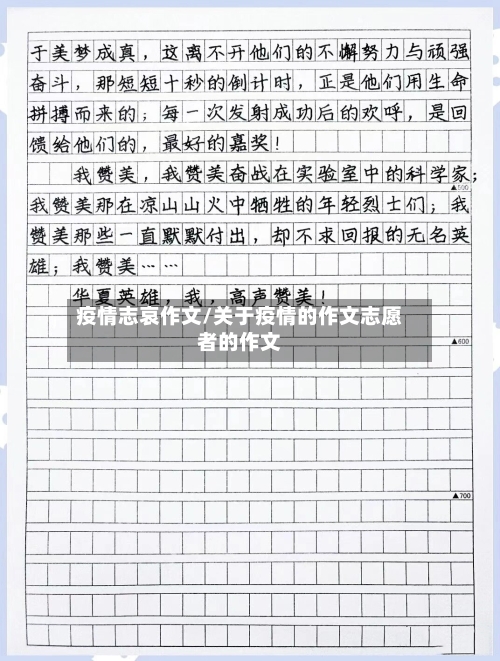 于美梦成真，这离不开他们的不懈努力与顽强
奋斗，那短短十秒的倒计时，正是他们用生命
拼搏而来的；每一次发射成功后的欢呼，是回
馈给他们的，最好的嘉奖！
我赞美，我赞美奋战在实验室中的科学家；
▲500
我赞美那在凉山山火中牺牲的年轻烈士们；我
赞美那些一直默默付出，却不求回报的无名英
雄；我赞美……
华夏英雄，我，高声赞美！
疫情志哀作文/关于疫情的作文志愿
者的作文
▲600
▲700